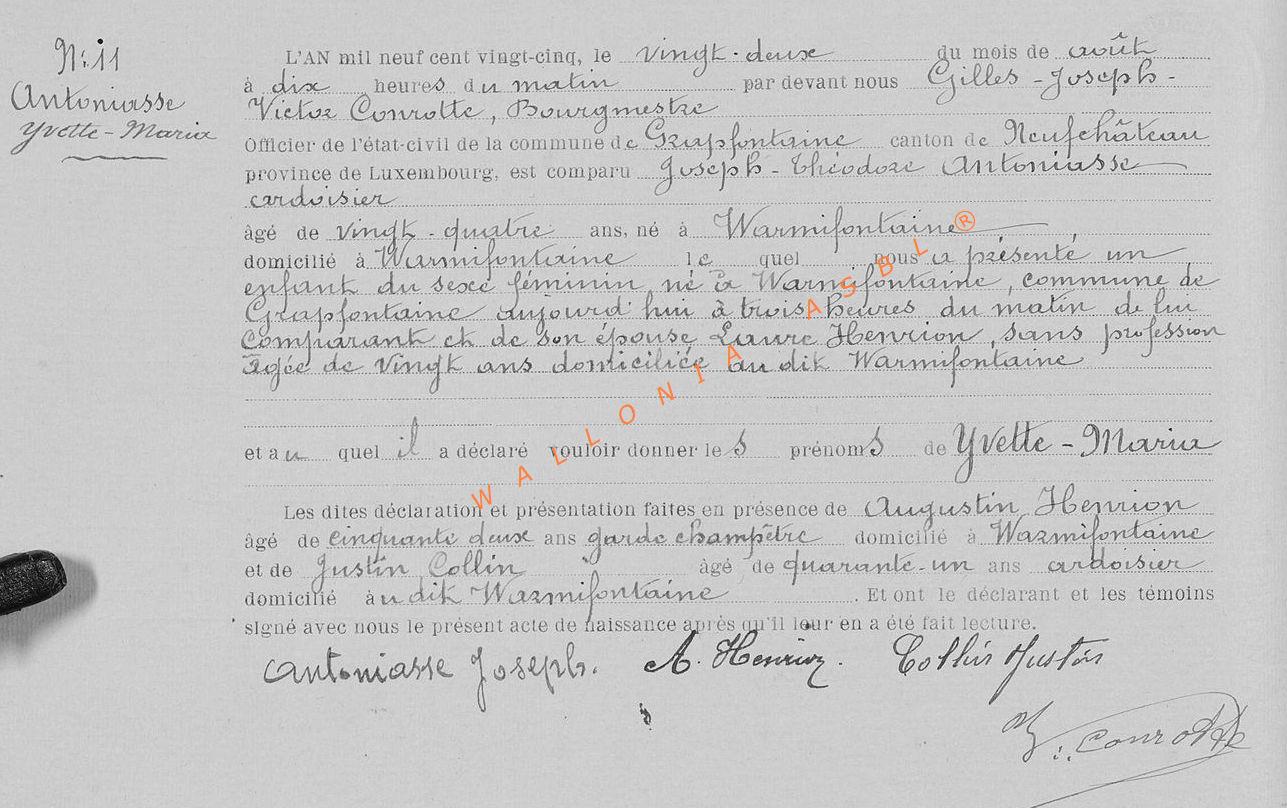 N: 11
Antoniasse
Yvette - Maria
L'AN mil neuf cent vingt-cinq, le vingt-deux du mois de août
à dix heures du matin par devant nous Gilles - Joseph -
Victor Conrotte, Bourgmestre
Officier de l'état-civil de la commune de Grapfontaine canton de Neufchâteau
province de Luxembourg, est comparu Joseph - Théodore Antoniasse
ardoisier
âgé de vingt-quatre ans, né à Warmifontaine
domicilié à Warmifontaine lequel nous a présenté un
enfant du sexe féminin né à Warmifontaine, commune de
Grapfontaine aujourd'hui à trois heures du matin de lui
Comparant et de son épouse Laure Henrion, sans profession
agée de vingt ans domiciliée au dit Warmifontaine
et auquel il a déclaré vouloir donner les prénoms de Yvette - Maria
Les dites déclaration et présentation faites en présence de Augustin Henrion
âgé de cinquante deux ans garde champêtre domicilié à Warmifontaine
et de Justin Collin âgé de quarante-un ans ardoisier
domicilié au dit Warmifontaine. Et ont le déclarant et les témoins
signé avec nous le présent acte de naissance après qu'il leur en a été fait lecture.
Antoniasse Joseph. A. Henrion. Collin Justin
Conrotte
WALLONIA ASBL®